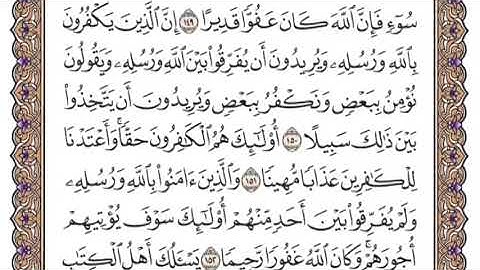 سُوٓءٖ فَإِنَّ ٱللَّهَ كَانَ عَفُوّٗا قَدِيرًا ١٤٩ إِنَّ ٱلَّذِينَ يَكۡفُرُونَ
بِٱللَّهِ وَرُسُلِهِۦ وَيُرِيدُونَ أَن يُفَرِّقُواْ بَيۡنَ ٱللَّهِ وَرُسُلِهِۦ وَيَقُولُونَ
نُؤۡمِنُ بِبَعۡضٖ وَنَكۡفُرُ بِبَعۡضٖ وَيُرِيدُونَ أَن يَتَّخِذُواْ
بَيۡنَ ذَٰلِكَ سَبِيلًا ١٥٠ أُوْلَٰٓئِكَ هُمُ ٱلۡكَٰفِرُونَ حَقّٗاۚ وَأَعۡتَدۡنَا
لِلۡكَٰفِرِينَ عَذَابٗا مُّهِينٗا ١٥١ وَٱلَّذِينَ ءَامَنُواْ بِٱللَّهِ وَرُسُلِهِۦ
وَلَمۡ يُفَرِّقُواْ بَيۡنَ أَحَدٖ مِّنۡهُمۡ أُوْلَٰٓئِكَ سَوۡفَ يُؤۡتِيهِمۡ
أُجُورَهُمۡۚ وَكَانَ ٱللَّهُ غَفُورٗا رَّحِيمٗا ١٥٢ يَسۡـَٔلُكَ أَهۡلُ ٱلۡكِتَٰبِ